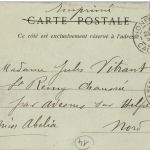 Imprimé
CARTE POSTALE
Ce côté est exclusivement réservé à l'adresse
Madame Jules Vitrant
St Rémy Chaussée
par Avesnes sur Helpe
Villa Abélia Nord